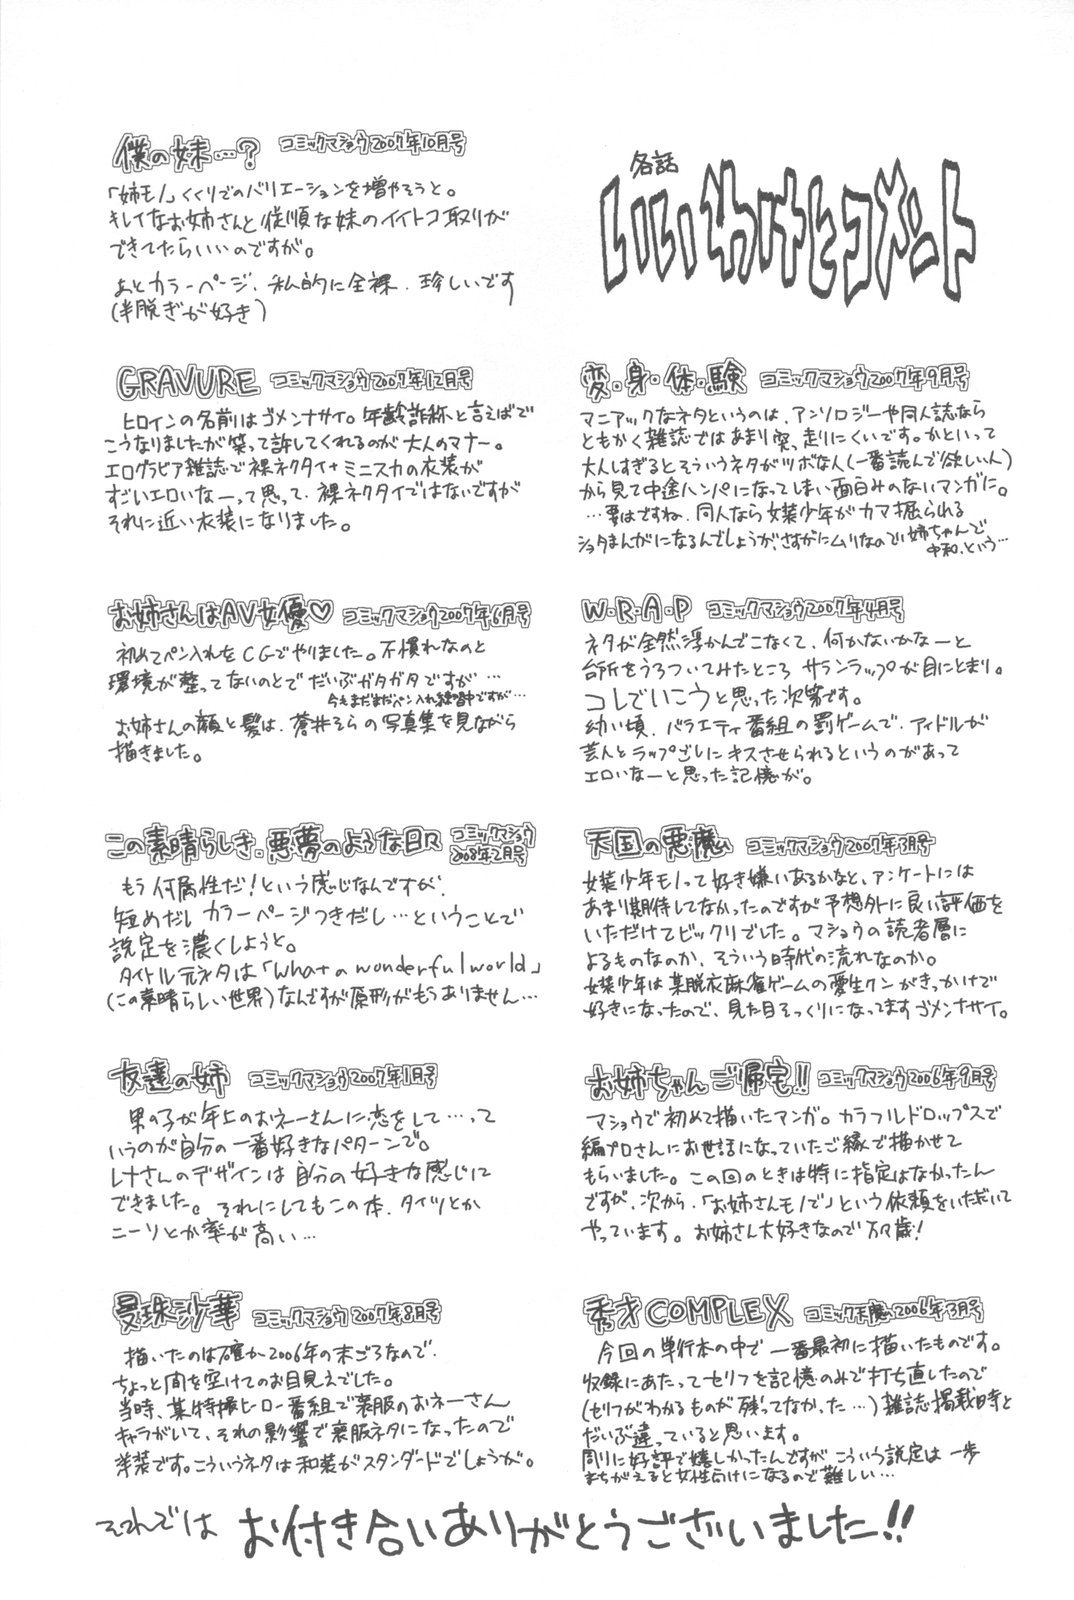 各話
いいわけとコメント
変・身・体・験 コミックマショウ2007年9月号
マニアックなネタというのは、アンソロジーや同人誌なら
ともかく雑誌ではあまり突っ走りにくいです。かといって
大人しすぎるとそういうネタがツボな人(一番読んで欲しい人)
から見て中途ハンパになってしまい面白みのないマンガに。
…要はですね、同人なら女装少年がカマ掘られる
ショタまんがになるんでしょうが、さすがにムリなので姉ちゃんで
中和、という…
W・R・A・P コミックマショウ2007年4月号
ネタが全然浮かんでこなくて、何かないかなーと
台所をうろついてみたところ サランラップが目にとまり。
コレでいこうと思った次第です。
幼い頃、バラエティ番組の罰ゲームで、アイドルが
芸人とラップごしにキスさせられるというのがあって
エロいなーと思った記憶が。
天国の悪魔 コミックマショウ2007年3月号
女装少年モノって好き嫌いあるかなと、アンケートには
あまり期待してなかったのですが予想外に良い評価を
いただけてビックリでした。マショウの読者層に
よるものなのか、そういう時代の流れなのか。
女装少年は某脱衣麻雀ゲームの愛生クンがきっかけで
好きになったので、見た目そっくりになってますゴメンナサイ。
お姉ちゃんご帰宅!! コミックマショウ2006年9月号
マショウで初めて描いたマンガ。カラフルドロップスで
編プロさんにお世話になっていたご縁で描かせて
もらいました。この回のときは特に指定はなかったん
ですが、次から、「お姉さんモノで」という依頼をいただいて
やっています。お姉さん大好きなので万々歳!
秀才COMPLEX コミック天魔2006年3月号
今回の単行本の中で一番最初に描いたものです。
収録にあたってセリフを記憶のみで打ち直したので
(セリフがわかるものが残ってなかった…)雑誌掲載時と
だいぶ違っていると思います。
周りに好評で嬉しかったんですが、こういう設定は一歩
まちがえると女性向けになるので難しい…
僕の妹…? コミックマショウ2007年10月号
「姉モノ」くくりでのバリエーションを増やそうと。
キレイなお姉さんと従順な妹のイイトコ取りが
できてたらいいのですが。
あとカラーページ、私的に全裸、珍しいです
(半脱ぎが好き)
GRAVURE コミックマショウ2007年12月号
ヒロインの名前はゴメンナサイ。年齢詐称と言えばで
こうなりましたが笑って許してくれるのが大人のマナー。
エログラビア雑誌で裸ネクタイ+ミニスカの衣装が
すごいエロいなーって思って、裸ネクタイではないですが
それに近い衣装になりました。
お姉さんはAV女優♡ コミックマショウ2007年6月号
初めてペン入れをCGでやりました。不慣れなのと
環境が整ってないのとでだいぶガタガタですが…
今もまだまだペン入れ練習中ですが…
お姉さんの顔と髪は、蒼井そらの写真集を見ながら
描きました。
この素晴らしき、悪夢のような日々 コミックマショウ
2008年2月号
もう何属性だ!という感じなんですが、
短めだしカラーページつきだし…ということで
設定を濃くしようと。
タイトル元ネタは「What a wonderful world」
(この素晴らしい世界)なんですが原形がもうありません…
友達の姉 コミックマショウ2007年1月号
男の子が年上のおネーさんに恋をして…って
いうのが自分の一番好きなパターンで。
レナさんのデザインは自分の好きな感じに
できました。それにしてもこの本、タイツとか
ニーソとか率が高い…
曼珠沙華 コミックマショウ2007年8月号
描いたのは確か2006年の末ごろなので、
ちょっと間を空けてのお目見えでした。
当時、某特撮ヒーロー番組で喪服のおネーさん
キャラがいて、それの影響で喪服ネタになったので
洋装です。こういうネタは和装がスタンダードでしょうが。
それでは お付き合いありがとうございました!!